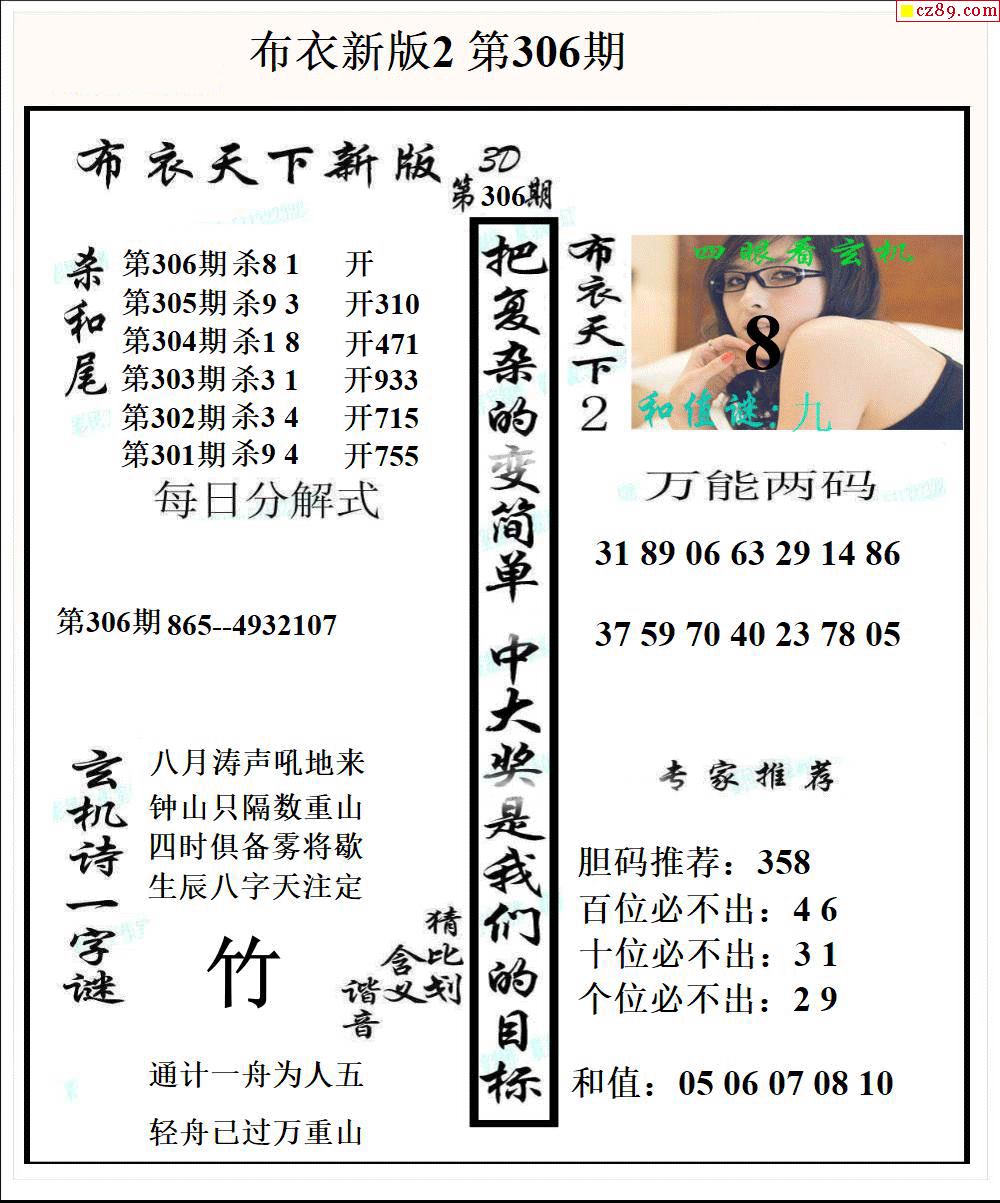 cz89.com
布衣新版2 第306期
布衣天下新版 3D
第306期
杀和尾
第306期 杀8 1 开
第305期 杀9 3 开310
第304期 杀1 8 开471
第303期 杀3 1 开933
第302期 杀3 4 开715
第301期 杀9 4 开755
每日分解式
第306期 865--4932107
玄机诗一字谜
八月涛声吼地来
钟山只隔数重山
四时俱备雾将歇
生辰八字天注定
竹
猜比划
含义
谐音
通计一舟为人五
轻舟已过万重山
把复杂的变简单 中大奖是我们的目标
布衣天下2
四眼看玄机
8
和值谜:九
万能两码
31 89 06 63 29 14 86
37 59 70 40 23 78 05
专家推荐
胆码推荐：358
百位必不出：4 6
十位必不出：3 1
个位必不出：2 9
和值：05 06 07 08 10